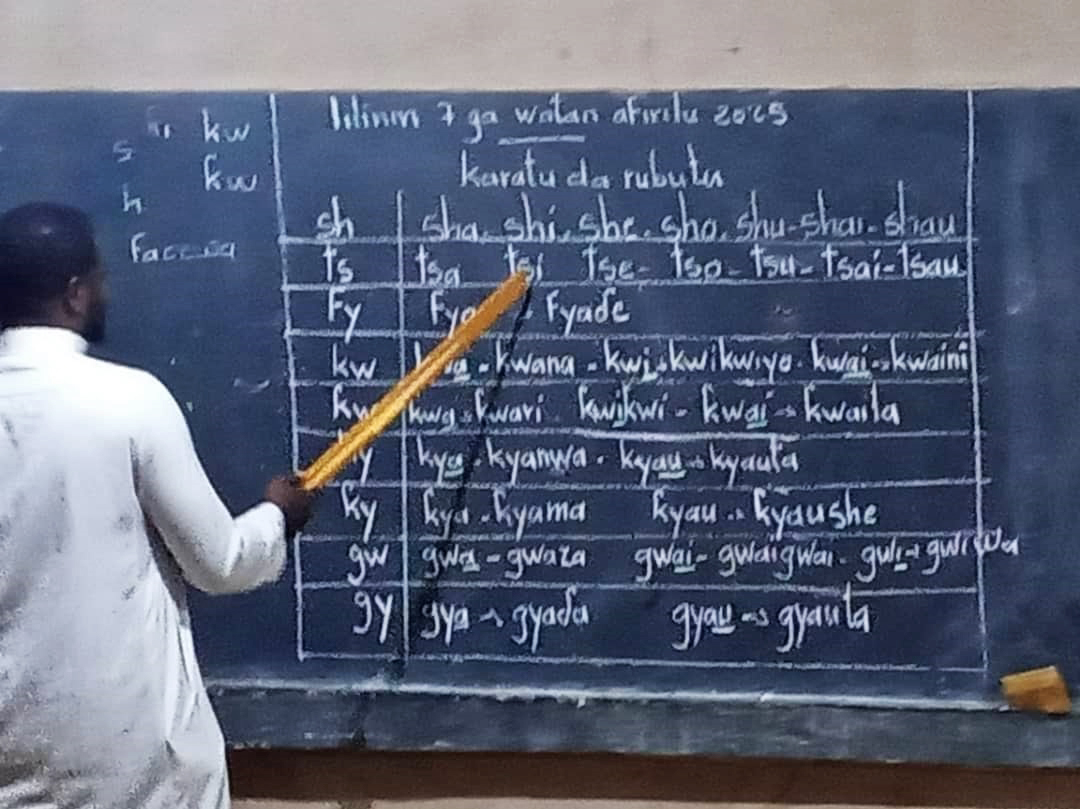 kw
s
ƙw
h
litinin 7 ga watan afirilu 2025
karatu da rubutu
sh sha - shi - she - sho - shu - shai - shau
ts tsa tsi tse - tso - tsu - tsai - tsau
Fy Fya - Fyaɗe
kw - kwana - kwi → kwikwiyo - kwai → kwaini
ƙw ƙwa - ƙwari ƙwiƙwi - ƙwai → ƙwaila
kya - kyanwa - kyau → kyauta
ƙy ƙya - ƙyama ƙyau → ƙyaushe
gw gwa - gwaza gwai - gwaigwai - gwi → gwiwa
gy gya → gyaɗa gyau → gyauta